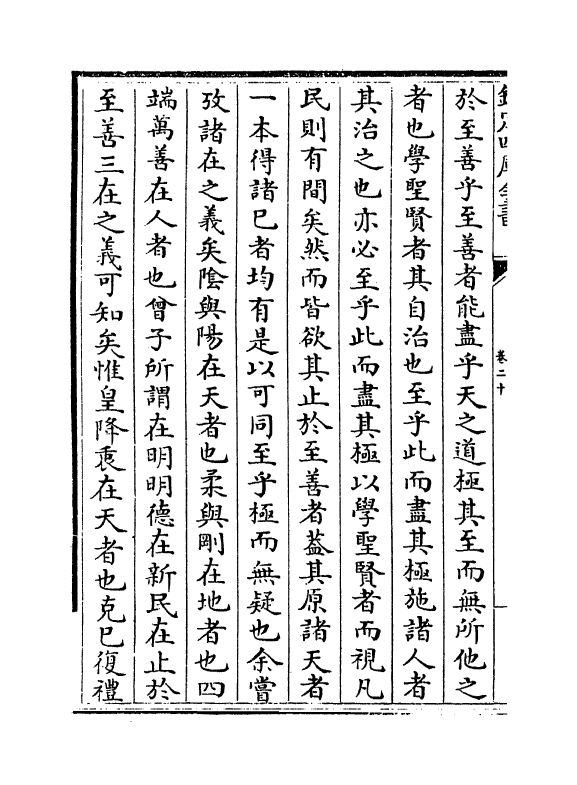 欽定四庫全書
卷二十
於至善乎至善者能盡乎天之道極其至而無所他之
者也學聖賢者其自治也至乎此而盡其極施諸人者
其治之也亦必至乎此而盡其極以學聖賢者而視凡
民則有間矣然而皆欲其止於至善者葢其原諸天者
一本得諸己者均有是以可同至乎極而無疑也余嘗
攷諸在之義矣陰與陽在天者也柔與剛在地者也四
端萬善在人者也曾子所謂在明明德在新民在止於
至善三在之義可知矣惟皇降衷在天者也克巳復禮